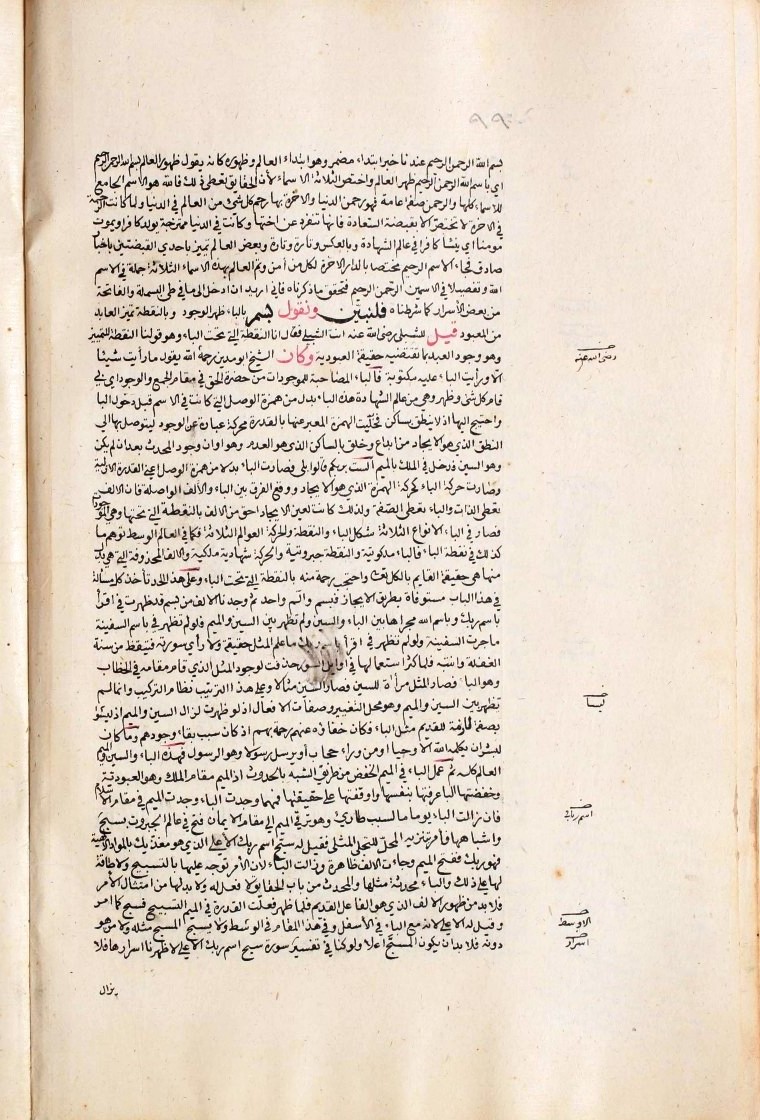 ٩٩
بسم الله الرحمن الرحيم عندنا خبر ابتداء مضمر وهو ابتداء العالم وظهوره كانه يقول ظهور العالم بسم الله الرحمن الرحيم
اي باسم الله الرحمن الرحيم ظهر العالم واختص الثلاثة الاسماء لأن الحقايق تعطي ذلك فالله هو الاسم الجامع
للاسماء كلها والرحمن صفة عامة فهو رحمن الدنيا والآخرة بها رحم كل شئ من العالم في الدنيا ولما كانت الرحمة
في الاخرة لا تختص الا بقبضة السعادة فانها تنفرد عن اختها وكانت في الدنيا ممتزجة يولد كافرا ويموت
مومنا اي ينشا كافرا في عالم الشهادة وبالعكس وتارة وتارة وبعض العالم تميز باحدي القبضتين باخبار
صادق فجاء الاسم الرحيم مختصا بالدار الاخرة لكل من آمن وتم العالم بهذه الاسماء الثلاثة جملة في الاسم
الله وتفصيلا في الاسمين الرحمن الرحيم فتحقق ما ذكرناه فاني اريد ان ادخل الى ما في طي البسملة والفاتحة
من بعض الأسرار كما شرطناه فلنبين ونقول بسم بالباء ظهر الوجود وبالنقطة تميز العابد
من المعبود قيل للشبلي رضي الله عنه انت الشبلي فقال انا النقطة التي تحت الباء وهو قولنا النقطة للتمييز
وهو وجود العبد بما تقتضيه حقيقة العبودية وكان الشيخ ابو مدين رحمه الله يقول ما رأيت شيئا
الا ورأيت الباء عليه مكتوبة فالباء المصاحبة للموجودات من حضرة الحق في مقام الجمع والوجود اي بي
قام كل شئ وظهر وهي من عالم الشهادة هذه الباء بدل من همزة الوصل التي كانت في الاسم قبل دخول الباء
واحتيج اليها اذ لا ينطق بساكن فجلبت الهمزة المعبر عنها بالقدرة محركة عبارة عن الوجود ليتوصل بها الي
النطق الذي هو الايجاد من ابداع وخلق بالساكن الذي هو العدم وهو اوان وجود المحدث بعد ان لم يكن
وهو السين فدخل في الملك بالميم الست بربكم قالوا بلى فصارت الباء بدلا من همزة الوصل اعني القدرة الازلية
وصارت حركة الباء كحركة الهمزة الذي هو الايجاد ووقع الفرق بين الباء والألف الواصلة فان الالف
تعطي الذات والباء تعطي الصفة ولذلك كانت لعين الايجاد احق من الالف بالنقطة التي تحتها وهي الموجودات
فصار في الباء الانواع الثلاثة شكل الباء والنقطة والحركة العوالم الثلاثة فكما في العالم الوسط توهم ما
كذلك في نقطة الباء فالباء ملكوتية والنقطة جبروتية والحركة شهادية ملكية والالف المحذوفة التي هي بدل
منها هي حقيقة القايم بالكل تعالى واحتجب رحمة منه بالنقطة التي تحت الباء وعلى هذا الحد تأخذ كل مسألة
في هذا الباب مستوفاة بطريق الايجاز فبسم والم واحد ثم وجدنا الالف من بسم قد ظهرت في اقرأ
باسم ربك وباسم الله مجراها بين الباء والسين ولم تظهر بين السين والميم فلو لم تظهر في باسم السفينة
ما جرت السفينة ولو لم تظهر في اقرأ باسم ربك ما علم المثل حقيقته ولا رأي صورته فتيقظ من سنة
الغفلة وانتبه فلما كثر استعمالها في اوايل السور حذفت لوجود المثل الذي قام مقامه في الخطاب
وهو الباء فصار المثل مرآة للسين فصار السين مثالا وعلى هذا الترتيب نظام التركيب وانما لم
تظهر بين السين والميم وهو محل التغيير وصفات الافعال اذ لو ظهرت لزال السين والميم اذ ليسا
بصفة لازمة للقديم مثل الباء فكان خفاؤه عنهم رحمة بهم اذ كان سبب بقاء وجودهم وما كان
لبشر ان يكلمه الله الا وحيا او من وراء حجاب أو يرسل رسولا وهو الرسول فهذه الباء والسين والميم
العالم كله ثم عمل الباء في الميم الخفض من طريق الشبه بالحدوث اذ الميم مقام الملك وهو العبودية
وخفضتها الباء عرفتها بنفسها واوقفتها على حقيقتها فمهما وجدت الباء وجدت الميم في مقام الاسلام
فان زالت الباء يوما ما لسبب طارئ وهو ترقي الميم الى مقام الايمان فتح في عالم الجبروت بسبح
واشباهها فأمر بتنزيه المحل لتجلي المثل فقيل له سبح اسم ربك الأعلى الذي هو مغذيك بالمواد الالهية
فهو ربك ففتح الميم وجاءت الالف ظاهرة وزالت الباء لأن الأمر توجه عليها بالتسبيح ولا طاقة
لها على ذلك والباء محدثة مثلها والمحدث من باب الحقايق لا فعل له ولا بد لها من امتثال الأمر
فلا بد من ظهور الالف الذي هو الفاعل القديم فلما ظهر فعلت القدرة في الميم التسبيح فسبح كما امر
وقيل له الاعلى لانه مع الباء في الأسفل وفي هذا المقام في الوسط ولا يسبح المسبح مثله ولا من هو
دونه فلا بد ان يكون المسبح اعلا ولو كنا في تفسير سورة سبح اسم ربك الاعلى لاظهرنا اسرارها فلا
يزال
رضي الله عنه
ليسا
اسم رباني
الاوسط
اسرار